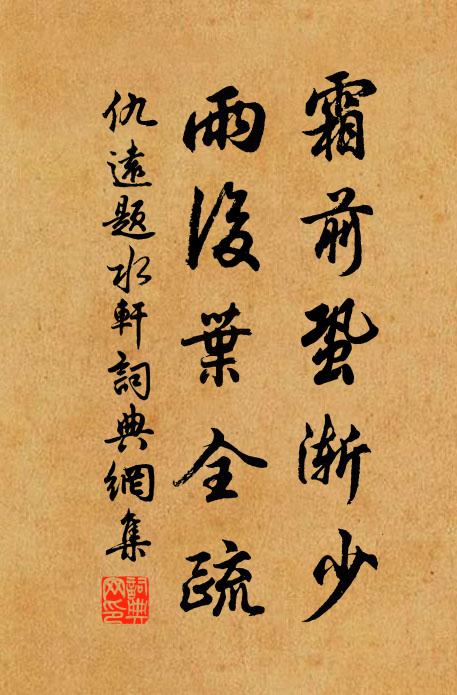 霜前蛩漸少
雨後葉全疏
仇遠題水軒詞典網集
詞典網印